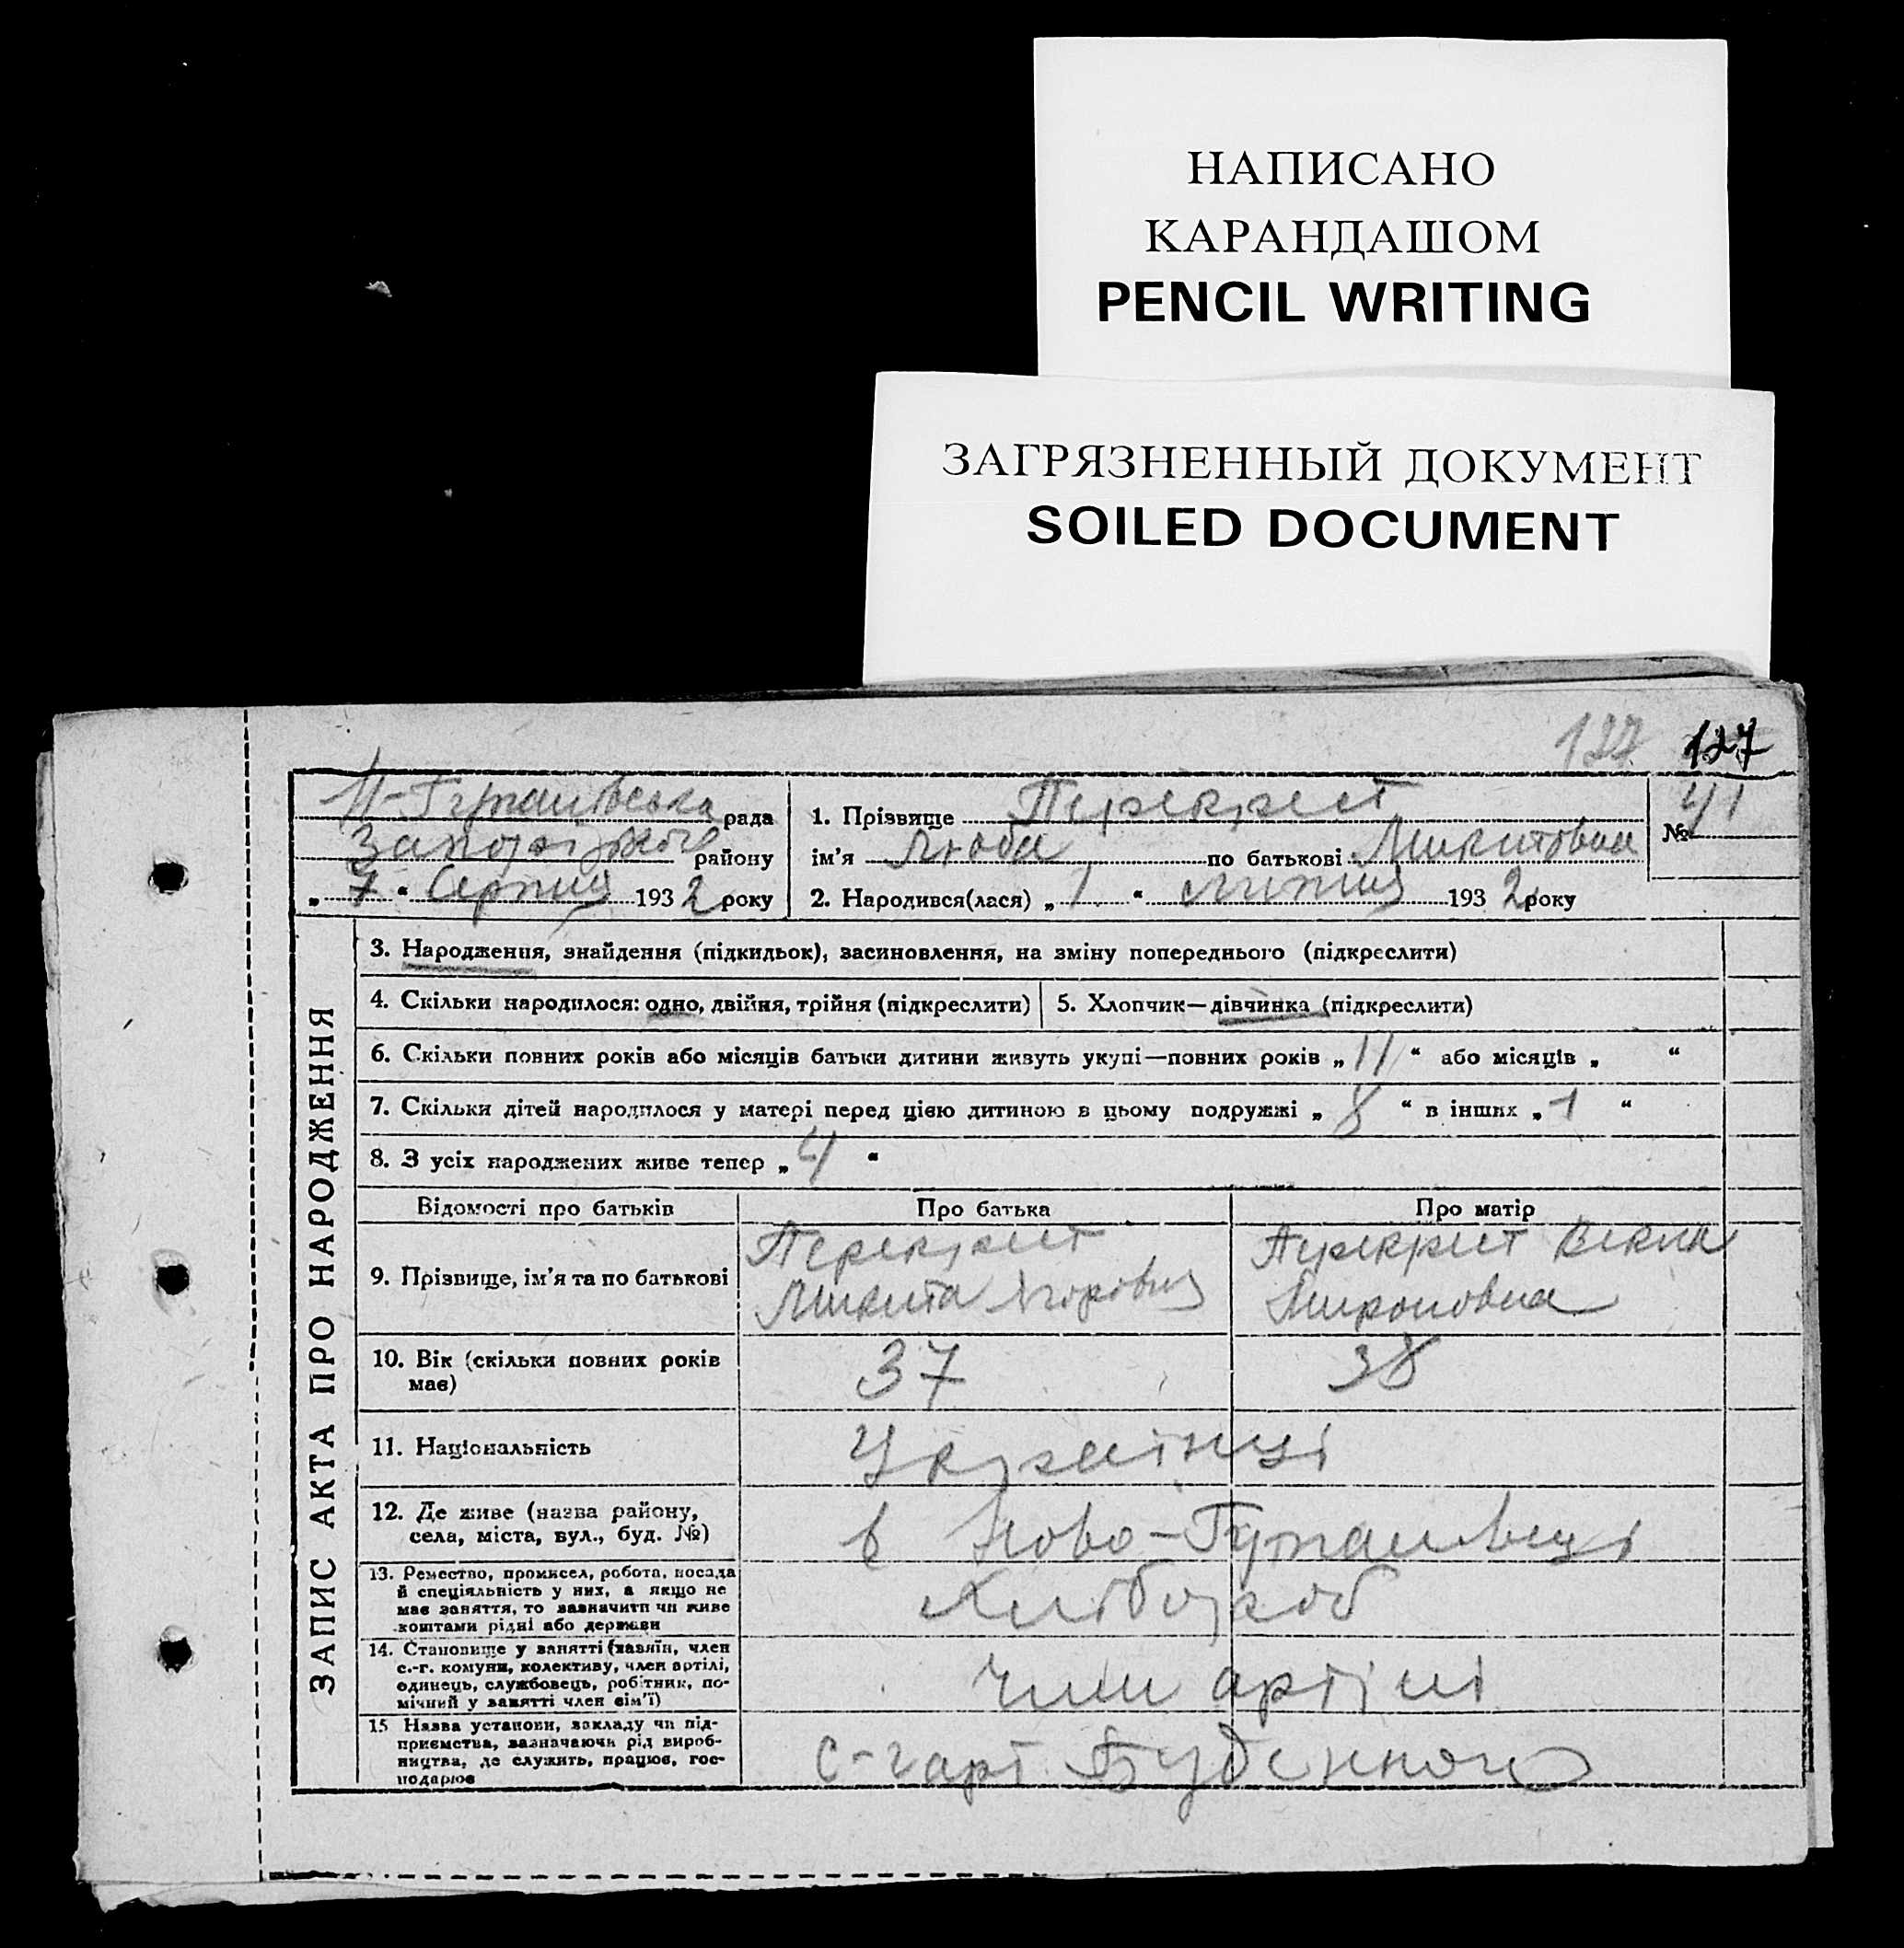 НАПИСАНО
КАРАНДАШОМ
PENCIL WRITING
ЗАГРЯЗНЕННЫЙ ДОКУМЕНТ
SOILED DOCUMENT
127 127
рада
району
„ 7 “ Серпня 1932 року
1. Прізвище Перекрест
ім’я Люба по батькові Микитовна
2. Народився(лася) „ 1 “ липня 1932 року
№ 41
ЗАПИС АКТА ПРО НАРОДЖЕННЯ
3. Народження, знайдення (підкидьок), засиновлення, на зміну попереднього (підкреслити)
4. Скільки народилося: одно, двійня, трійня (підкреслити) 5. Хлопчик—дівчинка (підкреслити)
6. Скільки повних років або місяців батьки дитини живуть укупі—повних років „ 11 “ або місяців „ “
7. Скільки дітей народилося у матері перед цією дитиною в цьому подружжі „ 8 “ в інших „ 1 “
8. З усіх народжених живе тепер „ 4 “
Відомості про батьків Про батька Про матір
9. Прізвище, ім’я та по батькові
Перекрест
Микита Ягорович
Перекрест
Мироновна
10. Вік (скільки повних років
має)
37 38
11. Національність Українці
12. Де живе (назва району,
села, міста, вул., буд. №)
в Ново-
13. Ремество, промисел, робота, посада
й спеціяльність у них, а якщо не
має заняття, то зазначити чи живе
коштами рідні або держави
Хлібороб
14. Становище у занятті (хазяїн, член
с.-г. комуни, колективу, член артілі,
одинець, службовець, робітник, по-
мічний у занятті член сім’ї)
член артілі
15 Назва установи, закладу чи під-
приємства, зазначаючи рід вироб-
ництва, де служить, працює, гос-
подарює
с-г арт. Буденного